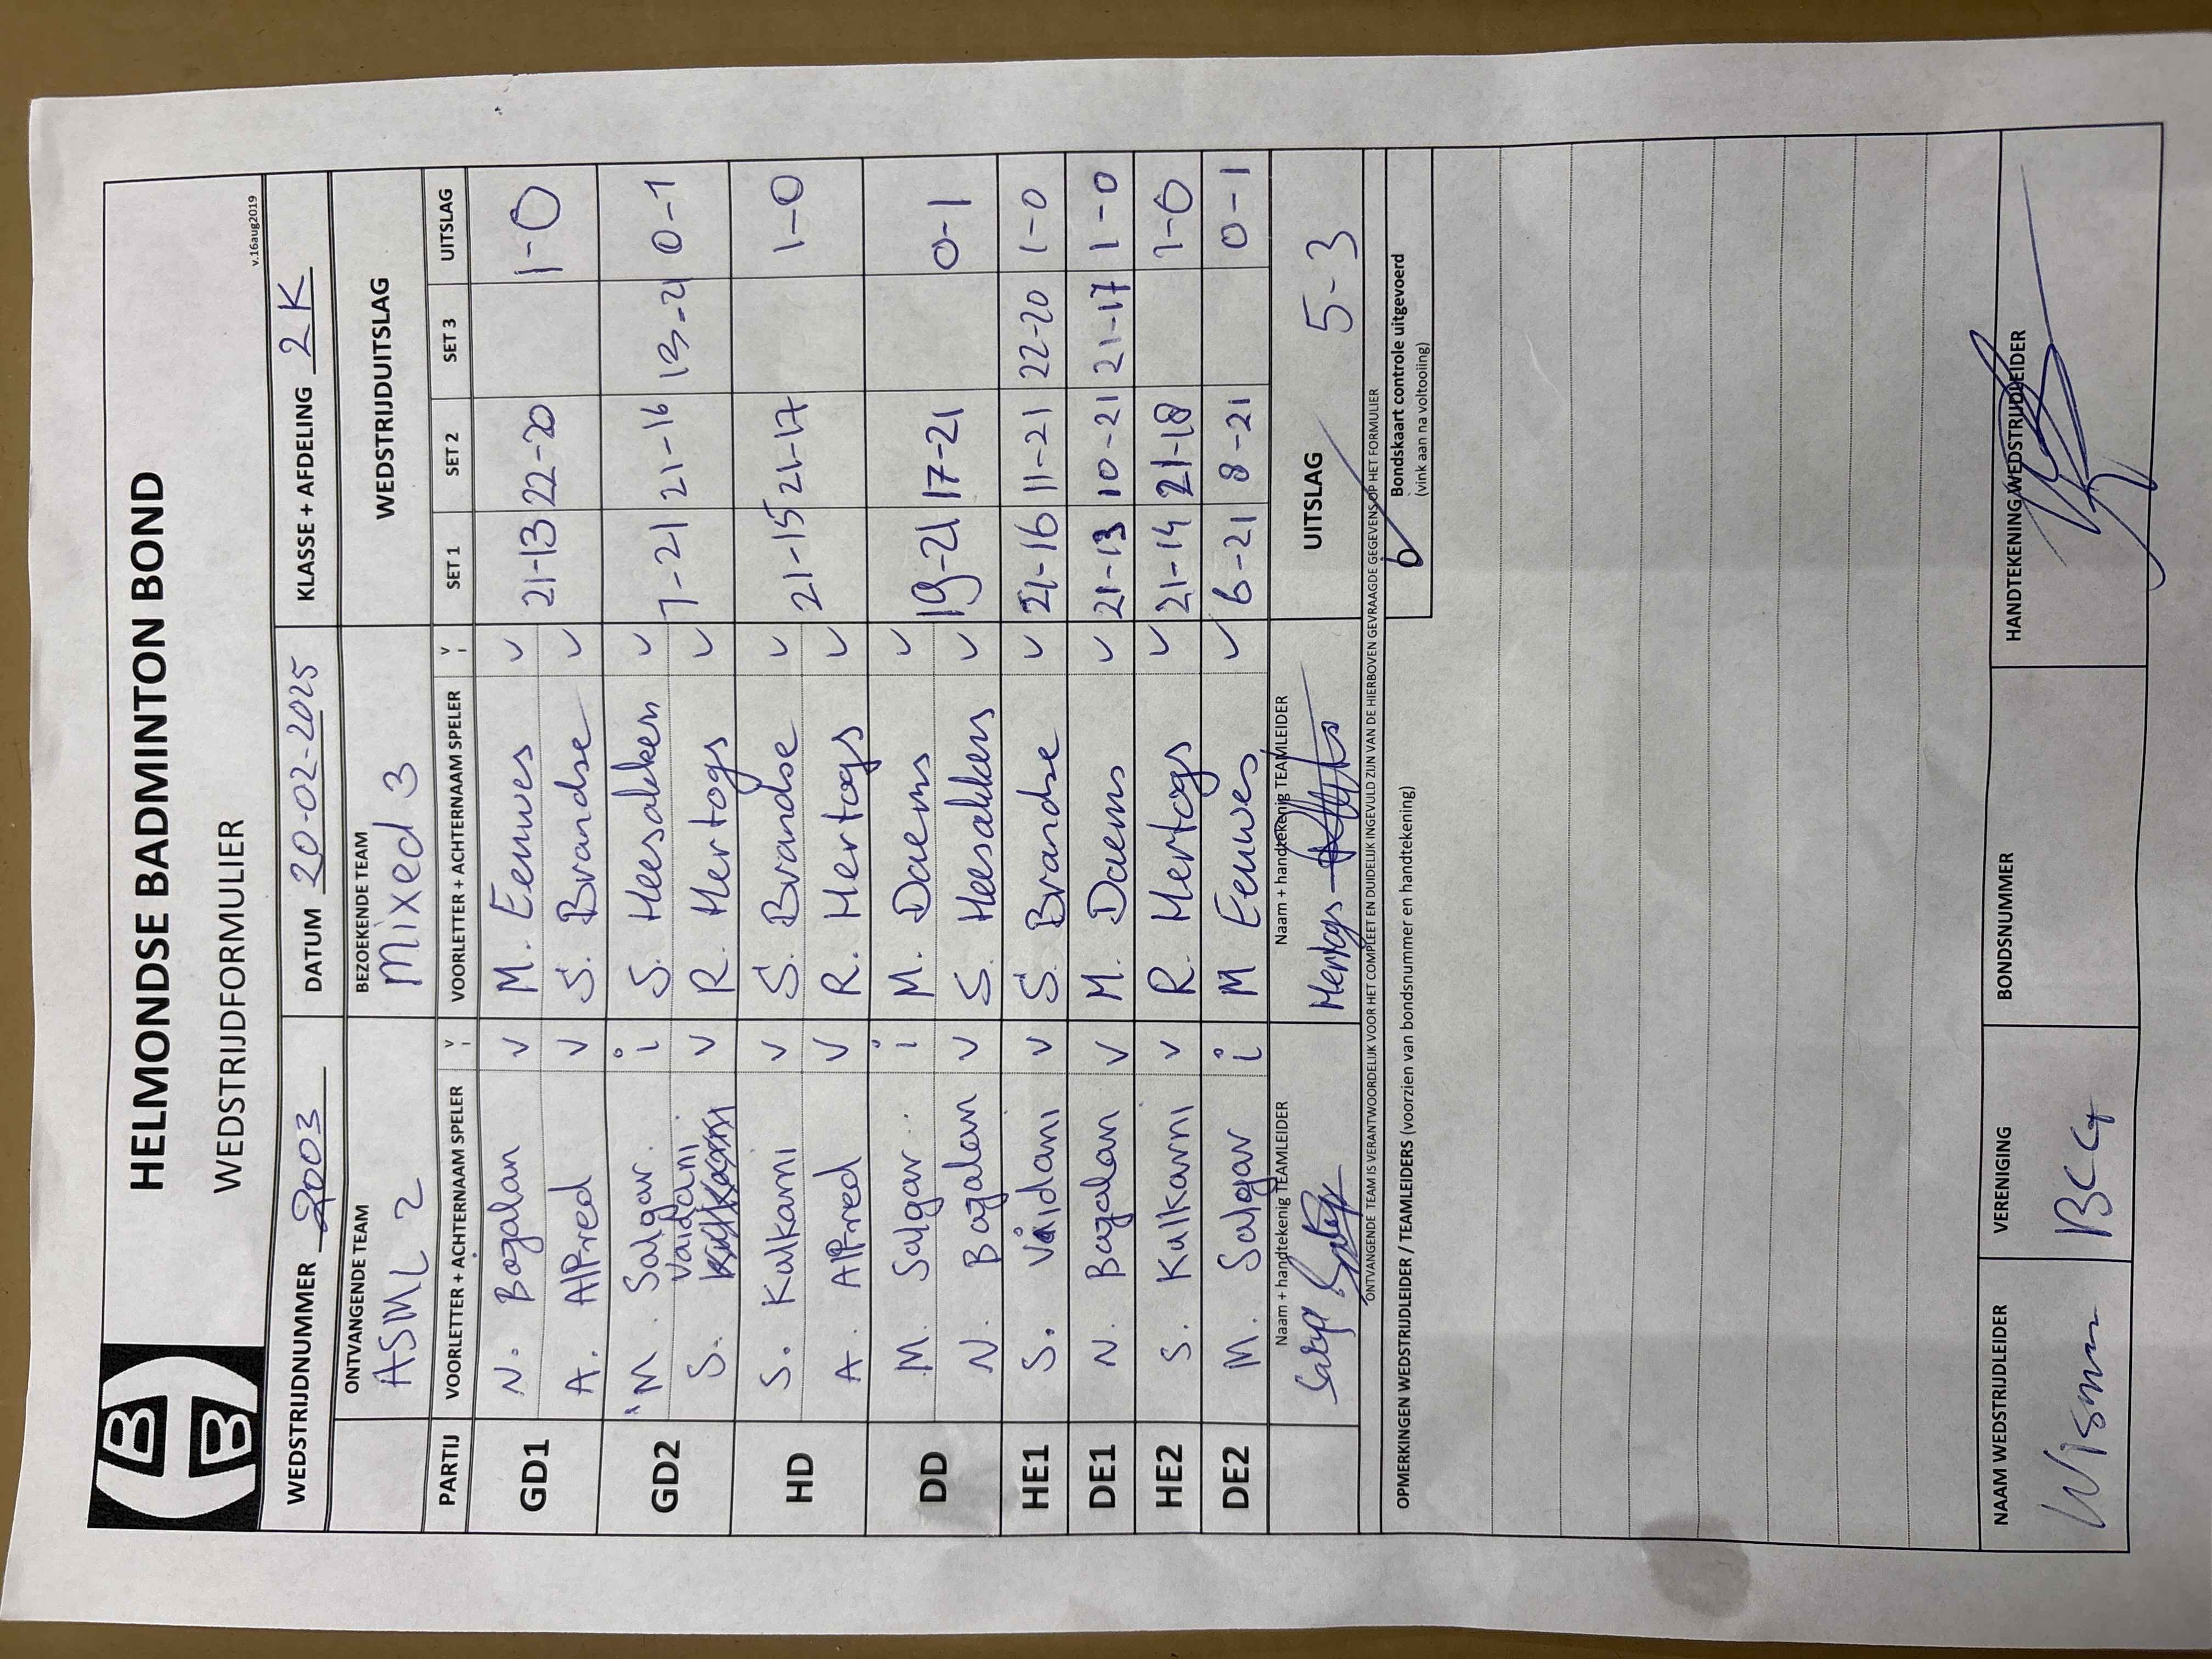 HELMONDSE BADMINTON BOND
WEDSTRIJDFORMULIER
v.16aug2019
WEDSTRIJDNUMMER 2003 DATUM 20-02-2025 KLASSE + AFDELING 2K
ONTVANGENDE TEAM BEZOEKENDE TEAM WEDSTRIJDUITSLAG
ASML 2 Mixed 3
PARTIJ VOORLETTER + ACHTERNAAM SPELER V I VOORLETTER + ACHTERNAAM SPELER V I SET 1 SET 2 SET 3 UITSLAG
GD1 N. Bagalan v M. Eeuwes v 21-13 22-20 1-0
A. Alfred v S. Brandse v
GD2 M. Salgar i S. Heesakkers v 7-21 21-16 13-21 0-1
S. Vaidani v R. Hertogs v
HD S. Kulkarni v S. Brandse v 21-15 21-17 1-0
A. Alfred v R. Hertogs v
DD M. Salgar i M. Daems v 19-21 17-21 0-1
N. Bagalan v S. Heesakkers v
HE1 S. Vaidani v S. Brandse v 21-16 11-21 22-20 1-0
DE1 N. Bagalan v M. Daems v 21-13 10-21 21-17 1-0
HE2 S. Kulkarni v R. Hertogs v 21-14 21-18 1-0
DE2 M. Salgar i M Eeuwes v 6-21 8-21 0-1
Naam + handtekenig TEAMLEIDER Naam + handtekenig TEAMLEIDER UITSLAG 5-3
Hertogs
ONTVANGENDE TEAM IS VERANTWOORDELIJK VOOR HET COMPLEET EN DUIDELIJK INGEVULD ZIJN VAN DE HIERBOVEN GEVRAAGDE GEGEVENS OP HET FORMULIER
OPMERKINGEN WEDSTRIJDLEIDER / TEAMLEIDERS (voorzien van bondsnummer en handtekening)
Bondskaart controle uitgevoerd
(vink aan na voltooiing)
NAAM WEDSTRIJDLEIDER VERENIGING BONDSNUMMER HANDTEKENING WEDSTRIJDLEIDER
Wisman BCG